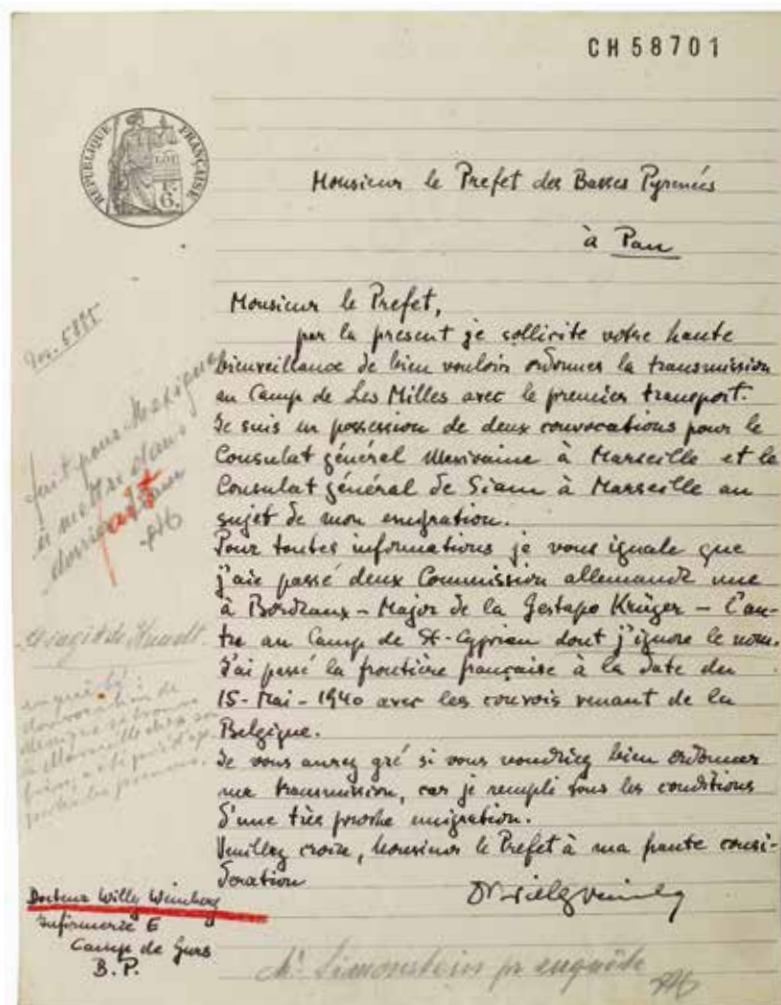 CH 58701
RÉPUBLIQUE FRANÇAISE
LOI
6 F.
Monsieur le Prefet des Basses Pyrenées
à Pau
Monsieur le Prefet,
par la present je sollicite votre haute
bienveillance de bien vouloir ordonner la transmission
au Camp de Les Milles avec le premier transport.
Je suis en possession de deux convocations pour le
Consulat général Mexicaine à Marseille et le
Consulat général de Siam à Marseille au
sujet de mon emigration.
Pour toutes informations je vous signale que
j'aie passé deux Commission allemande une
à Bordeaux – Major de la Gestapo Krüger – l'au-
tre au Camp de St-Cyprien dont j'ignore le nom.
J'ai passé la frontière française à la date du
15-Mai-1940 avec les convois venant de la
Belgique.
Je vous aurez gré si vous voudriez bien ordonner
ma transmission, car je rempli tous les conditions
d'une très proche emigration.
Veuillez croire, Monsieur le Prefet à ma haute consi-
deration
Docteur Willy Weinberg
Infirmerie E
Camp de Gurs
B.P.
5885
fait pour Mexique
à mettre dans
dossier
fait
convocation de
Mexique se trouve
à Marseille chez son
Mr Simonstein pr enquête